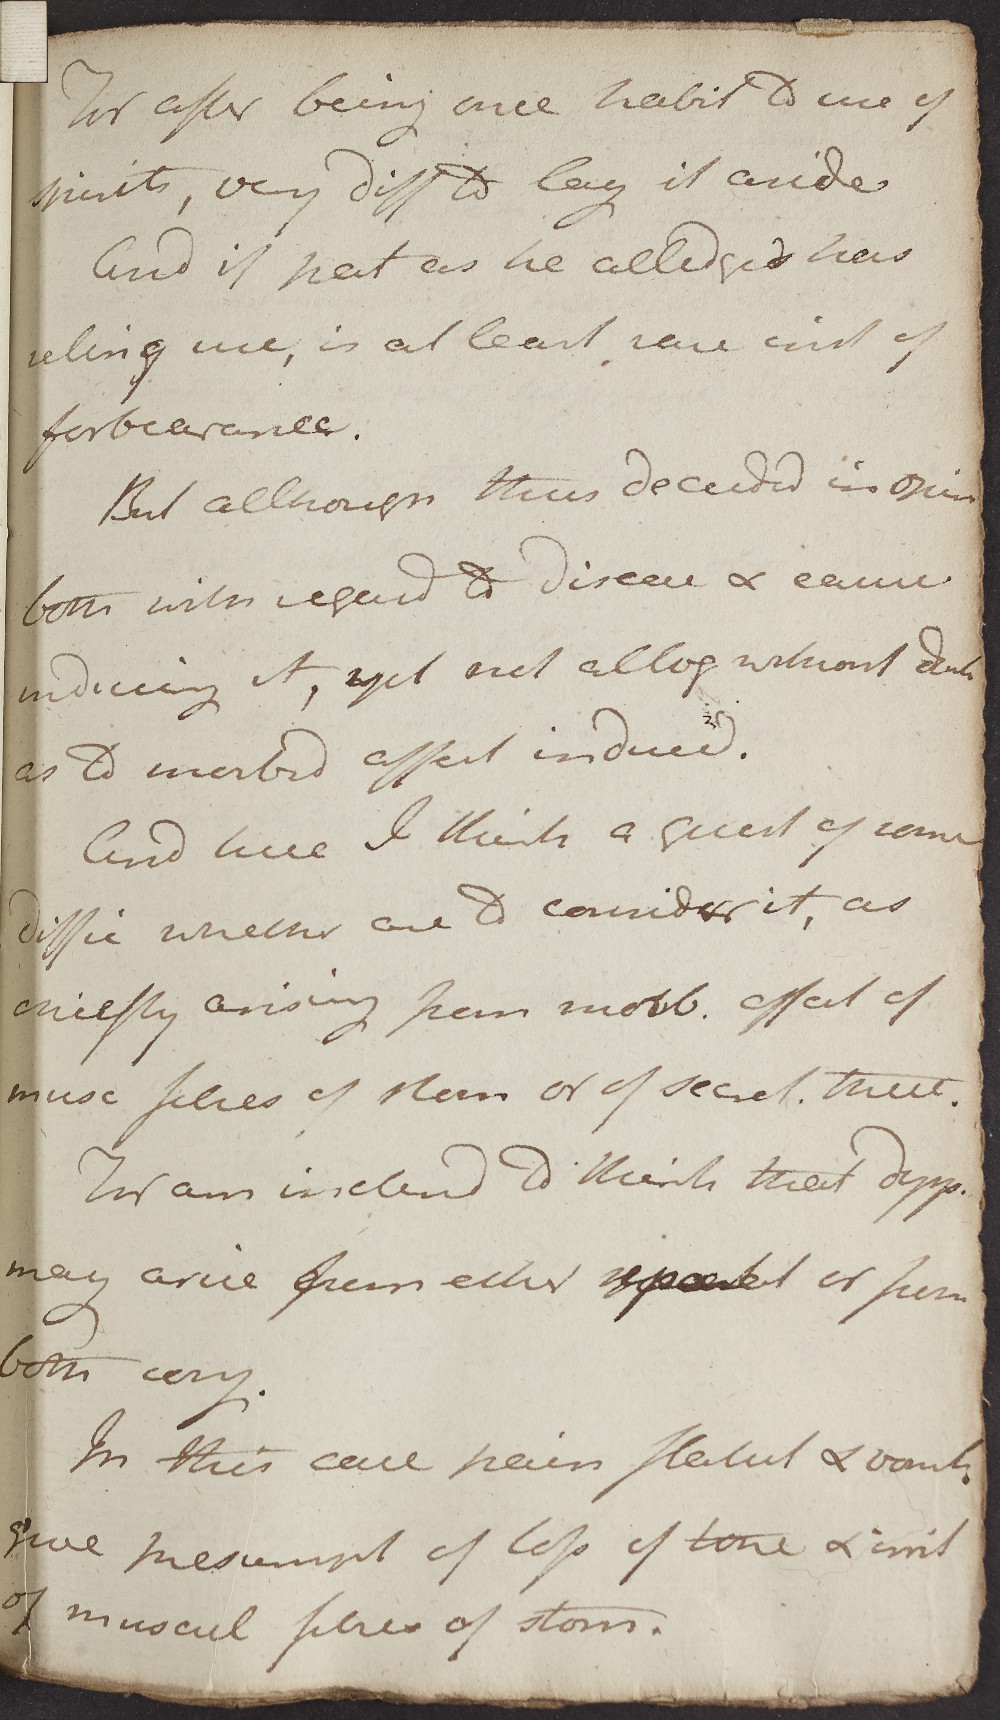 For after being once habit to use of
spirits, very diff to lay it aside
And if pat as he alledges has
relinq use, is at least rare inst of
forbearance.
But although thus decided in opin
both with regard to disease & cause
inducing it, yet not altog without doub
as to morbid affect induced.
And here I think a quest of some
diffic whether are to consider it, as
chiefly arising from morb. affect of
musc fibres of stom or of secret. there.
For am inclend to think that dysp.
may arise from either or from
both conj.
In this case pain flatul & vomit.
give presumpt of loss of tone & irrit
of muscul fibres of stom.